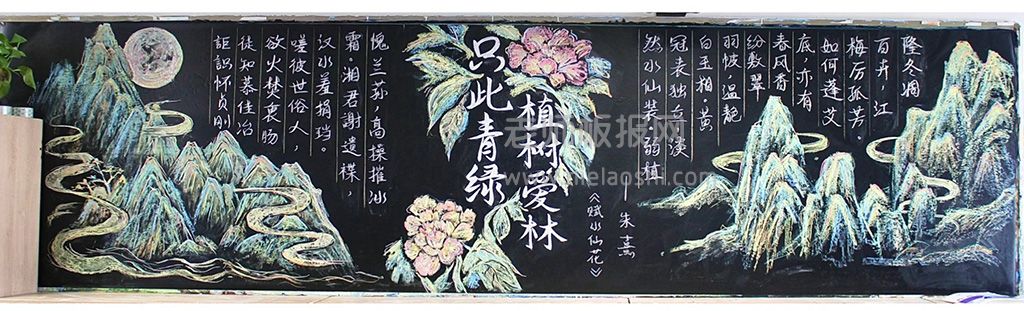 隆冬凋
百卉，江
梅厉孤芳。
如何蓬艾
底，亦有
春风香
纷敷翠
羽帔，温艳
白玉相。黄
冠表独立，淡
然水仙装。弱植
——朱熹
《赋水仙花》
植树愛林
只此青绿
愧兰荪，高操摧冰
霜。湘君谢遗褋，
汉水羞捐珰。
嗟彼世俗人，
欲火焚衷肠
徒知慕佳冶
讵识怀贞刚
老师板报网